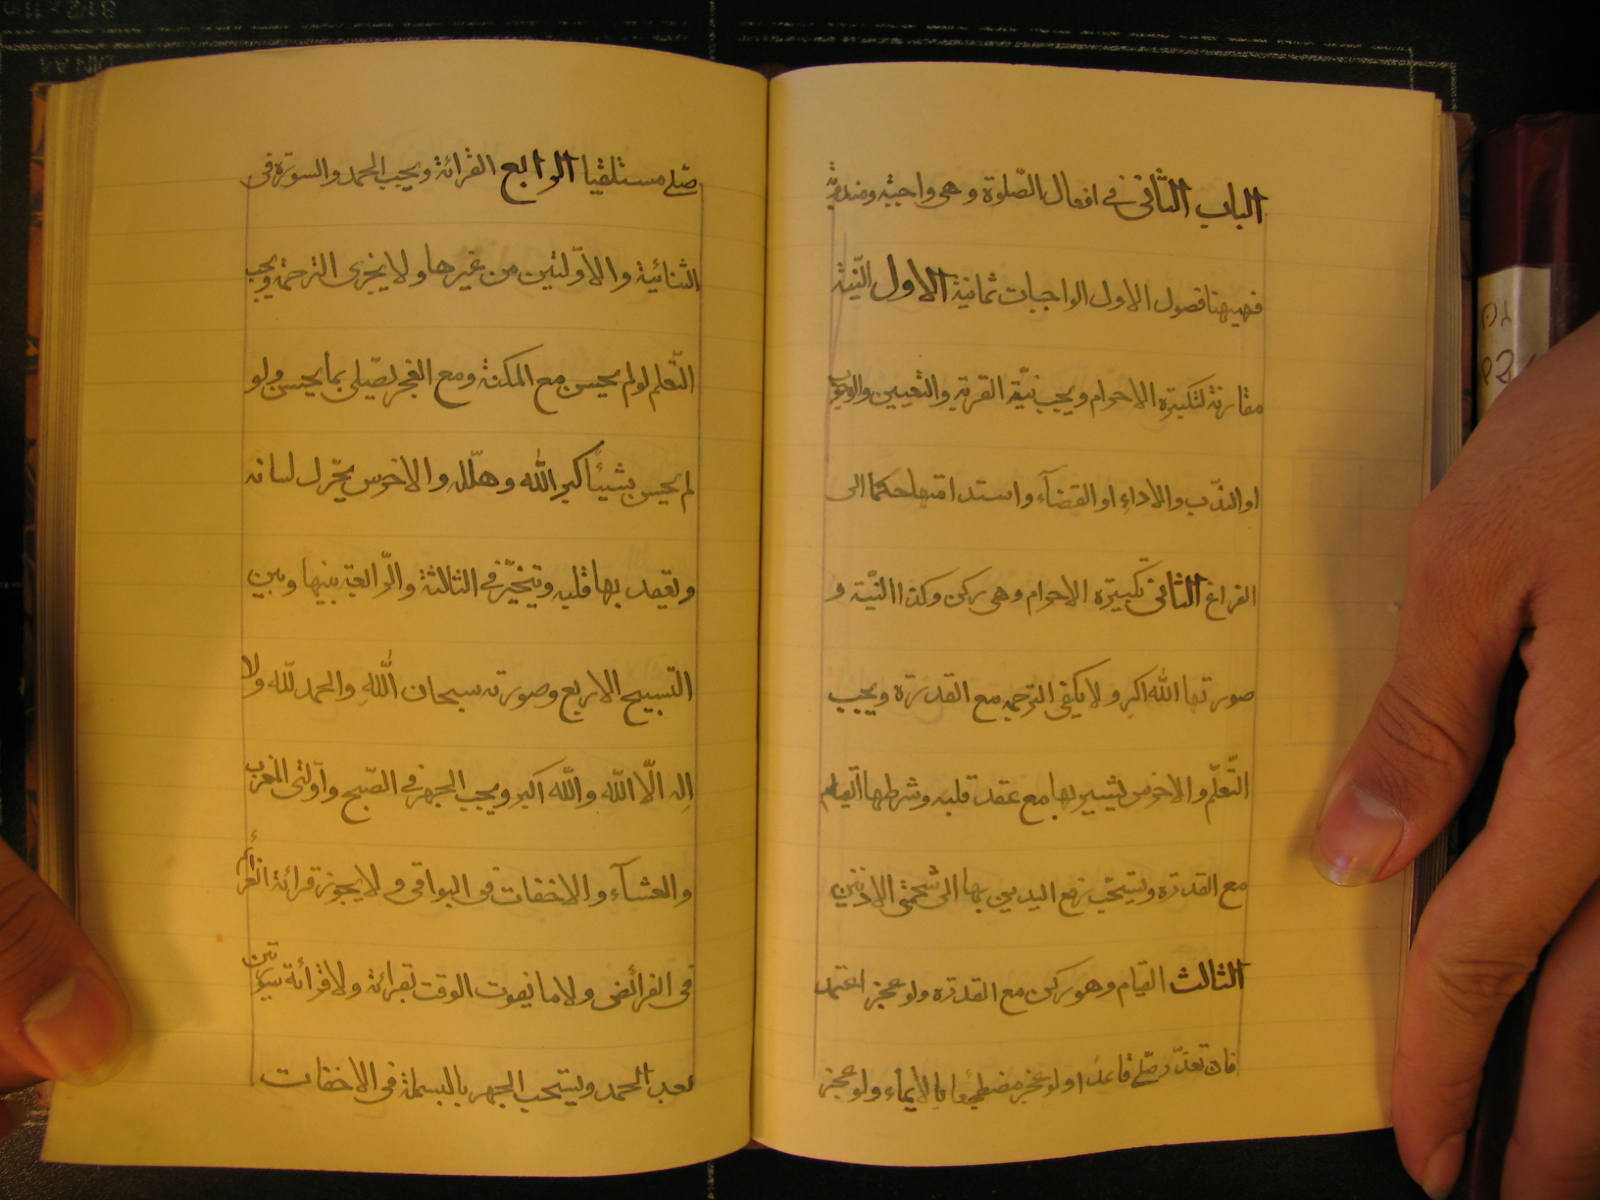 الباب الثانی فی افعال الصّلوة و هی واجبة ومندوبة
فهیهنا فصول الاول الواجبات ثمانیة الاول النیّة
مقارنة لتکبیرة الاحرام و یجب نیّة القربة والتعیین والوجوب
او النّدب والاداء او القضآء و استدامتها حکما الی
الفراغ الثانی تکبیرة الاحرام وهی رکن وکذا النیّة و
صورتها الله اکبر ولا یکفی الترجمه مع القدرة ویجب
التّعلّم والاخرس یشیر بها مع عقد قلبه وشرطها القیام
مع القدرة ویستحبّ رفع الیدین بها الی شحمتی الاذنین
الثالث القیام وهو رکن مع القدرة ولو عجز اعتمد
فان تعذّر صلّی قاعدا ولو عجز مضطجعا بالایمآء ولو عجز
صلّی مستلقیا الرابع القرائة ویجب الحمد والسورة فی
الثنائیة والاوّلتین من غیرها ولا یجزی الترجمة ویجب
التّعلم لو لم یحسن مع المکنة ومع العجز یصلّی بما یحسن ولو
لم یحسن شیئاً کبر الله وهلّله والاخرس یحرّک لسانه
ویعقد بها قلبه ویتخیّر فی الثالثة والرّابعة بینها وبین
التسبیح الاربع وصورته سبحان اللهِ والحمد للّه ولا
اِله الّا الله واللّه اکبر ویجب الجهر فی الصّبح واولتی المغرب
والعشآء والاخفات فی البواقی ولا یجوز قرائة العزائم
فی الفرائض ولا ما یفوت الوقت بقرائة ولا قرائة سورتین
بعد الحمد ویستحب الجهر بالبسملة فی الاخفات